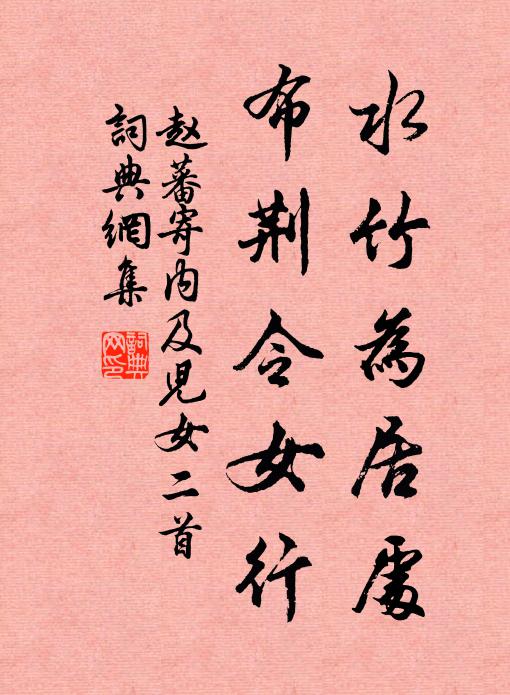 水竹為居處
布荆令女行
赵蕃寄内及兒女二首
詞典網集
詞典网印